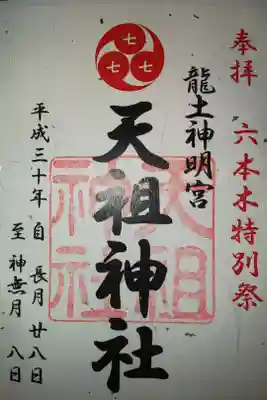 奉拝 六本木特別祭
龍土神明宮
七七七
天祖神社
天祖神社
平成三十年 自 長月 廿八日
至 神無月 八日